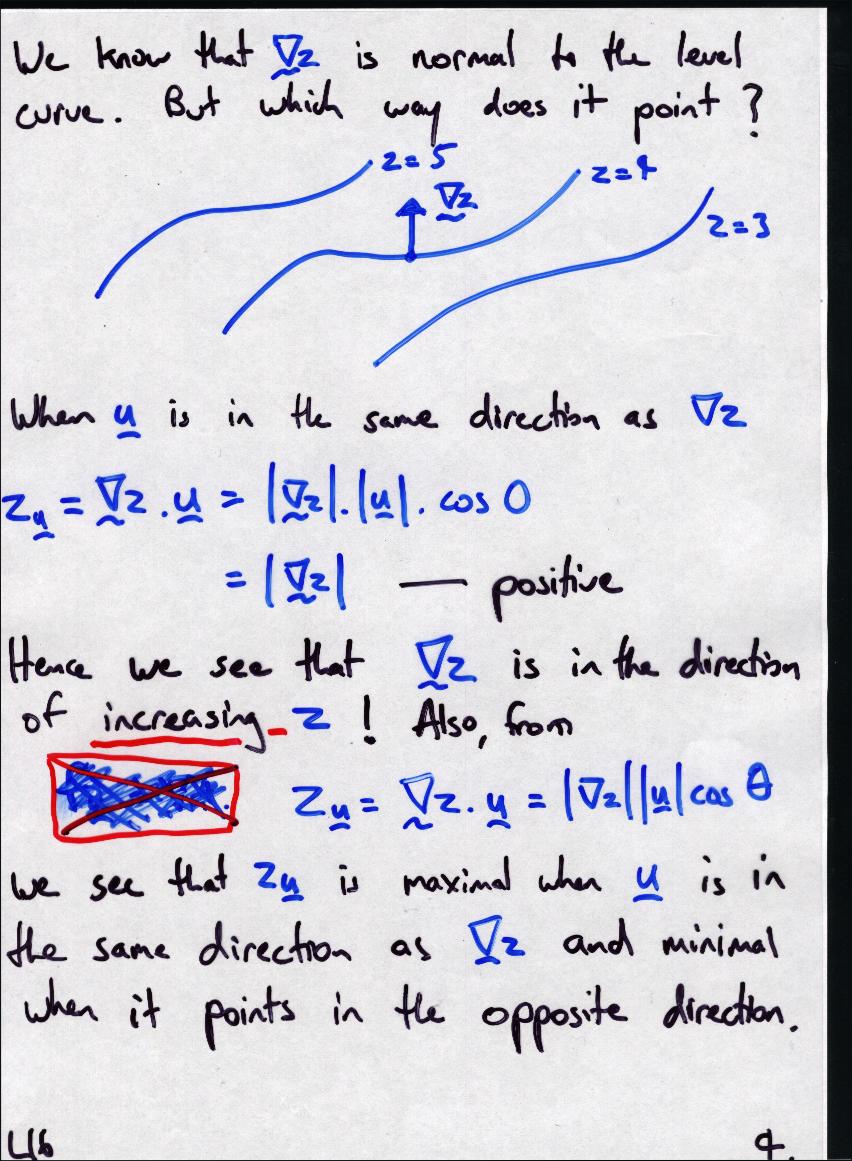 We know that ∇z is normal to the level
curve. But which way does it point?
z=5
z=4
∇z
z=3
When u is in the same direction as ∇z
z_u = ∇z . u = |∇z| . |u| . cos 0
= |∇z| — positive
Hence we see that ∇z is in the direction
of increasing z ! Also, from
z_u = ∇z . u = |∇z||u| cos θ
we see that z_u is maximal when u is in
the same direction as ∇z and minimal
when it points in the opposite direction.
4b 4.